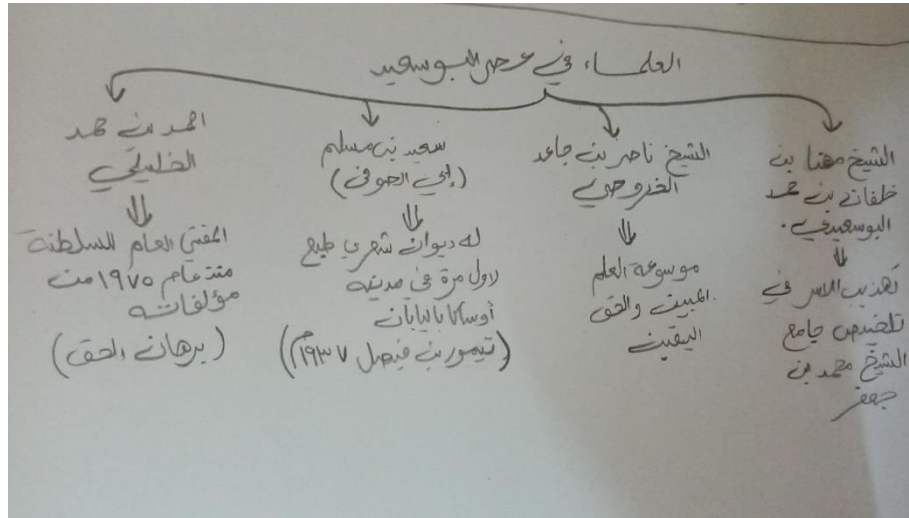 العلماء في عصر البوسعيد
الشيخ مهنا بن
خلفان بن حمد
البوسعيدي.
تهذيب الاسر في
تلخيص جامع
الشيخ محمد بن
جعفر
الشيخ ناصر بن جاعد
الخروصي
موسوعة العلم
المبين والحق
اليقين
سعيد بن مسلم
(ابي الصوفي)
له ديوان شعري طبع
لاول مرة في مدينه
أوساكا باليابان
(تيمور بن فيصل ١٩٣٧م)
احمد بن حمد
الخليلي
المفتي العام للسلطنة
منذ عام ١٩٧٥ من
مؤلفاته
(برهان الحق)